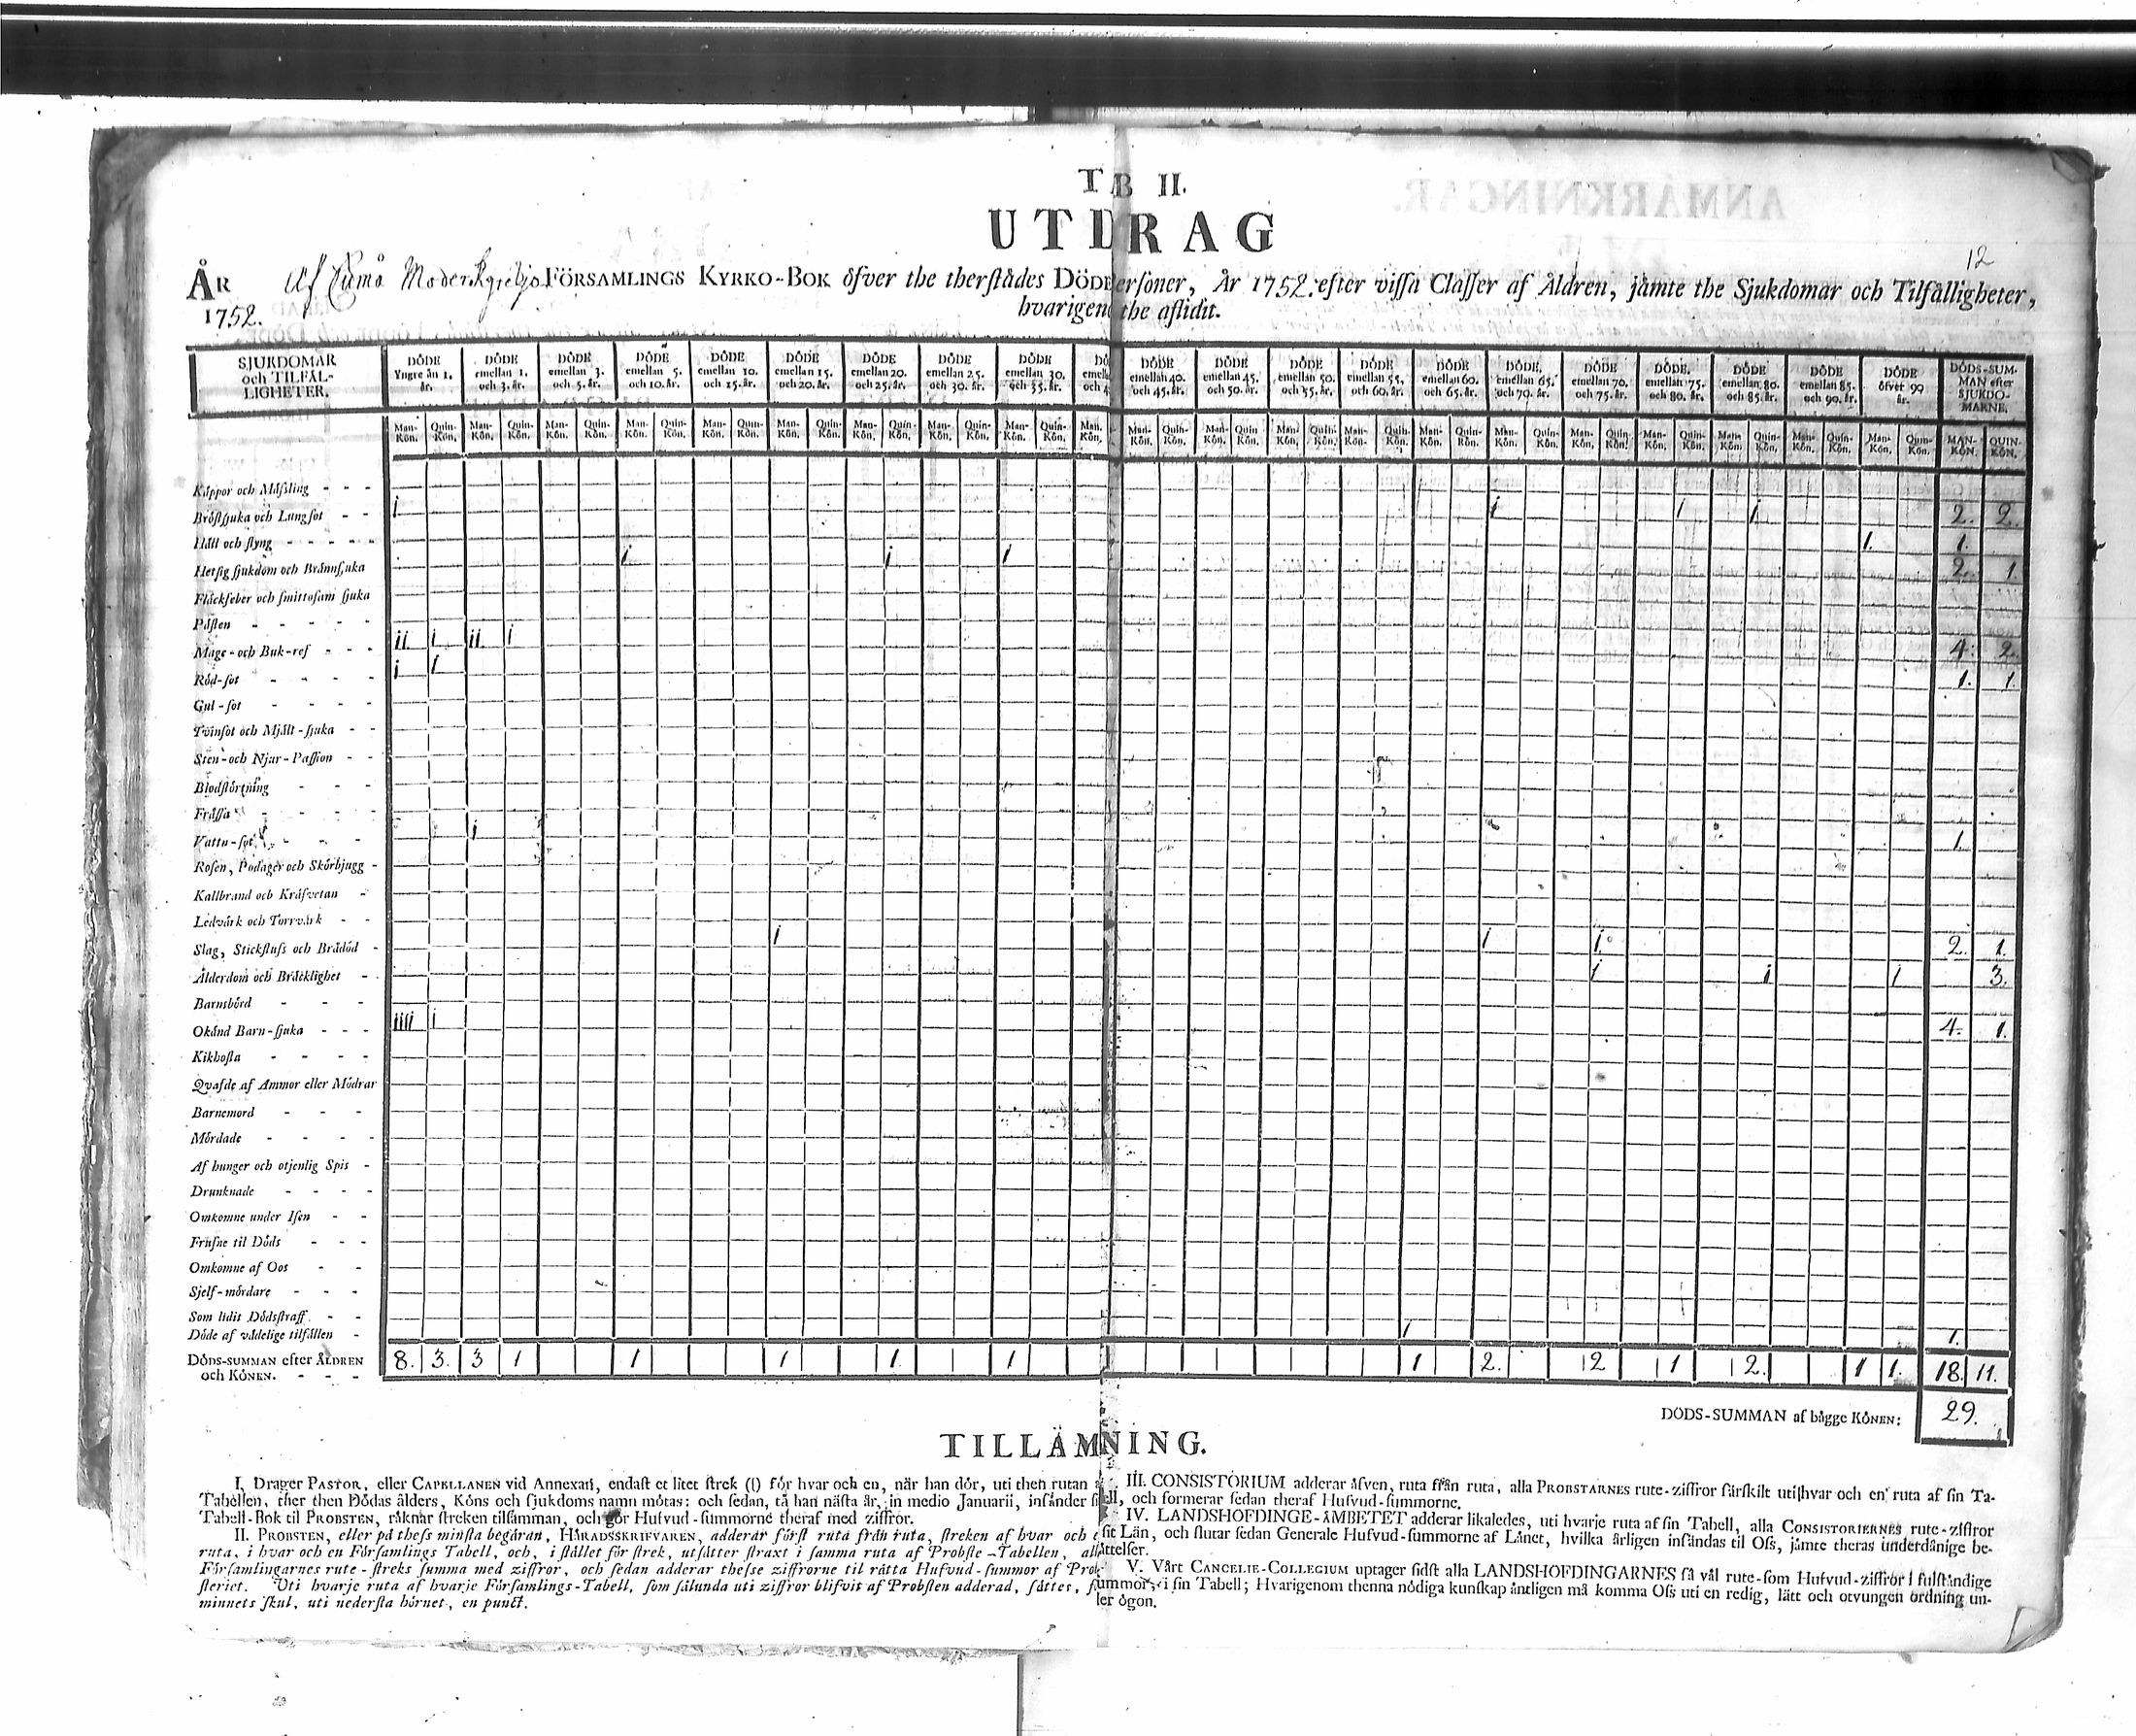 TAB II.
UTDRAG
12
ÅR 1752.
Af Moderkyrkjo FÖRSAMLINGS KYRKO-BOK öfver the therstädes DÖDE ersoner, År 1752. efter vissa Classer af Åldren, jämte the Sjukdomar och Tilfälligheter,
hvarigenom the aflidit.
SJUKDOMAR och TILFÄL-LIGHETER.
DÖDE Yngre än 1. år.
DÖDE emellan 1. och 3. år.
DÖDE emellan 3. och 5. år.
DÖDE emellan 5. och 10. år.
DÖDE emellan 10. och 15. år.
DÖDE emellan 15. och 20. år.
DÖDE emellan 20. och 25. år.
DÖDE emellan 25. och 30. år.
DÖDE emellan 30. och 35. år.
DÖDE emellan 40. och 45. år.
DÖDE emellan 45. och 50. år.
DÖDE emellan 50. och 55. år.
DÖDE emellan 55. och 60. år.
DÖDE emellan 60. och 65. år.
DÖDE emellan 65. och 70. år.
DÖDE emellan 70. och 75. år.
DÖDE emellan 75. och 80. år.
DÖDE emellan 80. och 85. år.
DÖDE emellan 85. och 90. år.
DÖDE öfver 90 år.
DÖDS-SUM-MAN efter SJUKDO-MARNE.
Man-Kön. Quin-Kön. Man-Kön. Quin-Kön. Man-Kön. Quin-Kön. Man-Kön. Quin-Kön. Man-Kön. Quin-Kön. Man-Kön. Quin-Kön. Man-Kön. Quin-Kön. Man-Kön. Quin-Kön. Man-Kön. Quin-Kön. Man-Kön. Man-Kön. Quin-Kön. Man-Kön. Quin-Kön. Man-Kön. Quin-Kön. Man-Kön. Quin-Kön. Man-Kön. Quin-Kön. Man-Kön. Quin-Kön. Man-Kön. Quin-Kön. Man-Kön. Quin-Kön. Man-Kön. Quin-Kön. Man-Kön. Quin-Kön. Man-Kön. Quin-Kön. MAN-KÖN. QUIN-KÖN.
Kåppor och Mäsling - - -
Bröstsjuka och Lungsot - - i i i i 2. 2.
Håll och styng - - - - - 1. 1.
Hetsig sjukdom och Brännsjuka i i i 2. 1.
Fläckfeber och smittosam sjuka
Påsten - - - - -
Mage-och Buk-ref - - - ii i ii i 4. 2.
Röd-sot - - - - i i 1. 1.
Gul-sot - - - -
Tvinsot och Mjält-sjuka - -
Sten-och Njur-Passion - -
Blodstörtning - - -
Fråssa - - - -
Vattu-sot - - - i 1.
Rosen, Podager och Skörbjugg -
Kallbrand och Kräfvetan -
Ledvärk och Torrvärk - -
Slag, Stickfluss och Brådöd - i i i 2. 1.
Ålderdom och Bräcklighet - i i i 3.
Barnsbörd - - -
Okänd Barn-sjuka - - - iiii i 4. 1.
Kikhosta - - - -
Qvafde af Ammor eller Mödrar
Barnemord - - -
Mördade - - - -
Af hunger och otjenlig Spis -
Drunknade - - - -
Omkomne under Isen - -
Frusne til Döds - - -
Omkomne af Oos - -
Sjelf-mördare - - -
Som lidit Dödsstraff - -
Döde af vådelige tilfällen - 1 1.
DÖDS-SUMMAN efter ÅLDREN och KÖNEN. - - - 8. 3. 3 1 1 1 1. 1 1 2. 2 1 2. 1 1. 18. 11.
DÖDS-SUMMAN af bägge KÖNEN: 29.
TILLÄMNING.
I. Drager PASTOR, eller CAPELLANEN vid Annexan, endast et litet strek (|) för hvar och en, när han dör, uti then rutan a
Tabellen, ther then Dödas ålders, Köns och sjukdoms namn mötas: och sedan, tå han nästa år, in medio Januarii, insänder
Tabell-Bok til PROBSTEN, räknar streken tilsamman, och gör Hufvud-summorne theraf med ziffror.
II. PROBSTEN, eller på thess minsta begäran, HÄRADSSKRIFVAREN, adderar först ruta från ruta, streken af hvar och e
ruta, i hvar och en Församlings Tabell, och, i stället för strek, utsätter straxt i samma ruta af Probste-Tabellen, al
Församlingarnes rute-streks summa med ziffror, och sedan adderar thesse ziffrorne til rätta Hufvud-summor af Prob
steriet. Uti hvarje ruta af hvarje Församlings-Tabell, som sålunda uti ziffror blifvit af Probsten adderad, sättes,
minnets skul, uti nedersta hörnet, en punct.
III. CONSISTORIUM adderar äfven, ruta från ruta, alla PROBSTARNES rute-ziffror särskilt uti hvar och en ruta af sin Ta-
ell, och formerar sedan theraf Hufvud-summorne.
IV. LANDSHÖFDINGE-ÄMBETET adderar likaledes, uti hvarje ruta af sin Tabell, alla CONSISTORIERNES rute-ziffror
sit Län, och slutar sedan Generale Hufvud-summorne af Länet, hvilka årligen insändas til Oss, jämte theras underdånige be-
rättelser.
V. Vårt CANCELIE-COLLEGIUM uptager sidst alla LANDSHÖFDINGARNES så väl rute-som Hufvud-ziffror i fulständige
summor, i sin Tabell; Hvarigenom thenna nödiga kunskap äntligen må komma Oss uti en redig, lätt och otvungen ordning un-
er ögon.